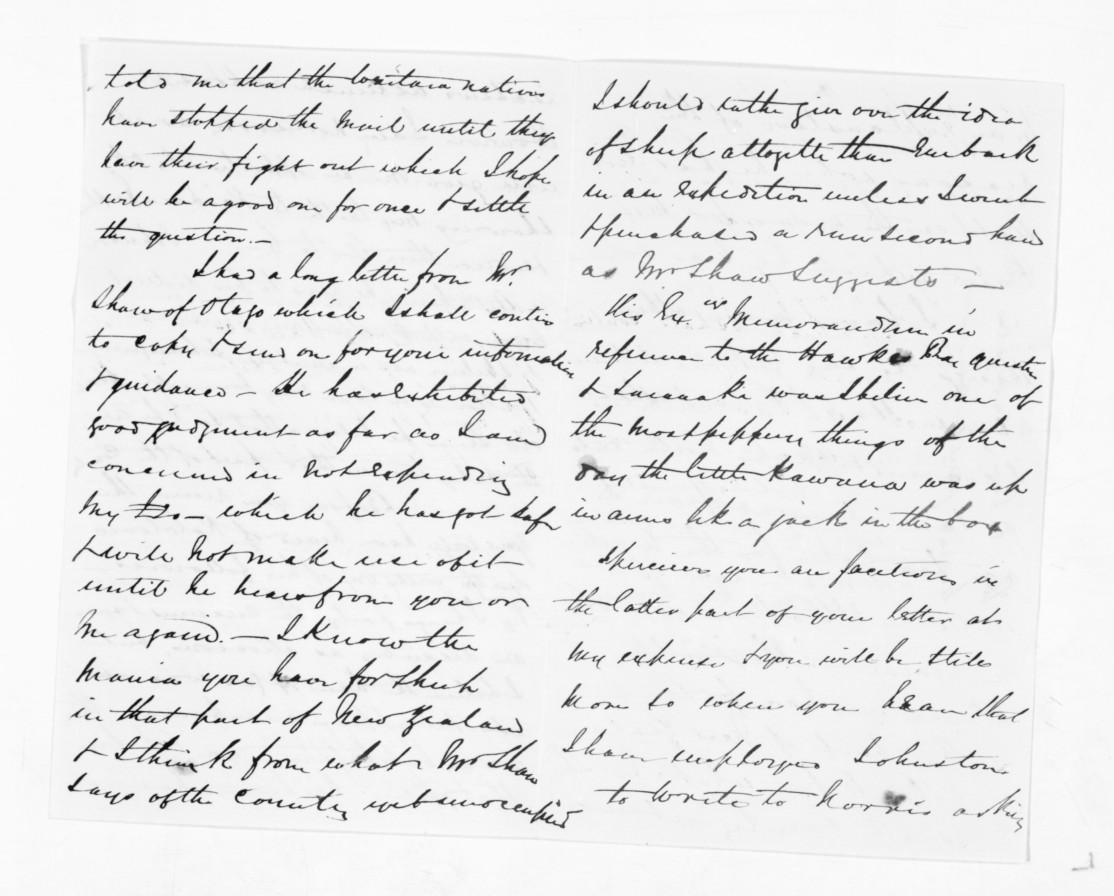 told me that the Waitara natives
have stopped the Mail until they
have their fight out which I hope
will be a good one for once & settle
the question. —
I had a long letter from Mr.
Shaw of Otago which I shall contive
to copy & send on for your information
& guidance — He has exhibited
good judgment as far as I am
concerned in not expending
my £ — which he has got safe
& will not make use of it
until he hears from you or
me again. — I know the
mania you have for Sheep
in that part of New Zealand
& I think from what Mr Shaw
says of the Country unoccupied
I should rather give over the idea
of sheep altogether than Embark
in an Expedition unless I went
& purchased a run second hand
as Mr Shaw Suggests —
His Ex.cys Memorandum in
reference to the Hawkes Bay question
& Taranaki was I believe one of
the most peppery things of the
day the little Kawana was up
in arms like a jack in the box
I perceive you are facetious in
the latter part of your letter at
my expense & you will be still
more so when you hear that
I have employed Johnston
to write to Norris asking